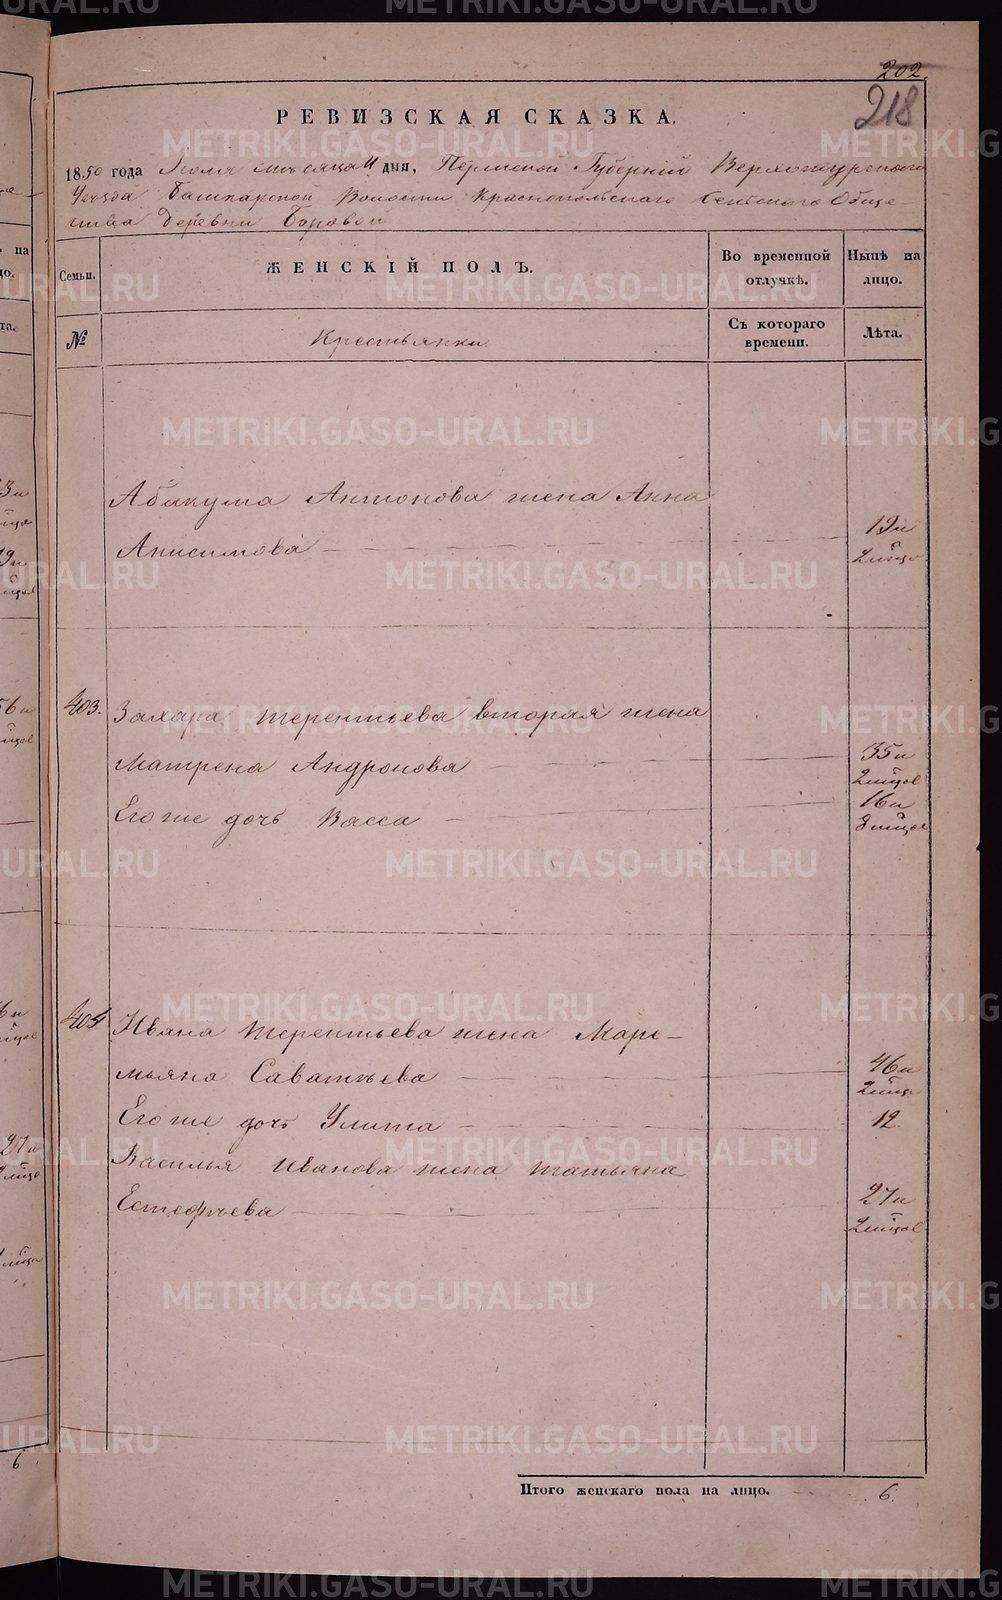 202.
218
РЕВИЗСКАЯ СКАЗКА.
1850 года Июля месяца 11 дня, Пермской Губерніи Верхотурскаго
Уезда Башкарской Волости Краснопольскаго Сельскаго Обще-
ства Деревни Боровой
Семьи.
ЖЕНСКІЙ ПОЛЪ.
Во временной отлучкѣ.
Нынѣ на лицо.
№
Крестьянки
Съ котораго времени.
Лѣта.
Абакума Антонова жена Анна
Анисимова 19 и
403. Захара Терентьева вторая жена
Матрена Андронова 35 и
Его же дочь Васса 16 и
404 Ивана Терентьева жена Маре-
мьяна Саватѣева 46 и
Его же дочь Улита 12.
Василья Иванова жена Татьяна
Естефѣева 27 и
Итого женскаго пола на лицо. 6.
METRIKI.GASO-URAL.RU